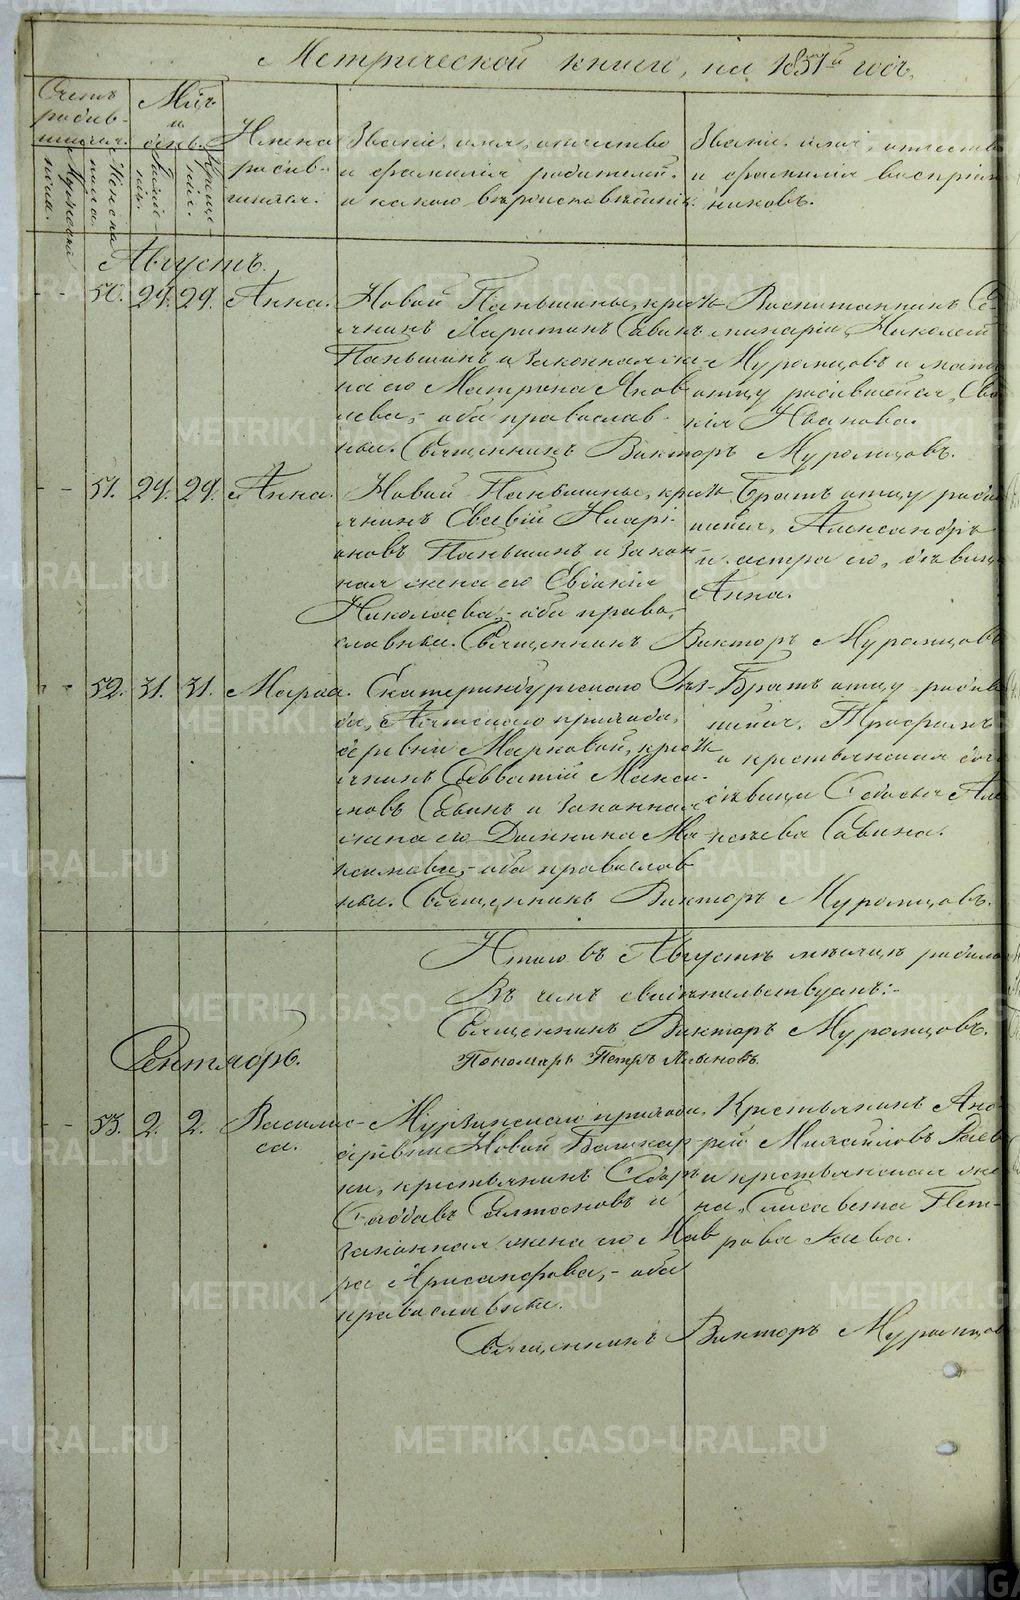 Метрической книги, на 1857й годъ,
Счетъ родив-шихся.
Мужеска пола.
Женска пола.
Мѣс. и день.
Рожде-нія.
Креще-нія.
Имена родив-шихся.
Званіе, имя, отчество и фамилія родителей. и какого вѣроисповѣданія.
Званіе, имя, отчество и фамилія воспріем-никовъ.
Августъ.
50. 29. 29. Анна.
Новой Паньшиной, кресть-
янинъ Харитонъ Савинъ
Паньшинъ и законная же-
на его Матрона Яков-
лева, - оба православ-
ные. Священникъ Викторъ Муромцовъ.
Воспитанникъ Се-
минаріи, Николай
Муромцовъ и
отцу родившейся,
Иванова.
51. 29. 29. Анна.
Новой Паньшиной, кресть-
янинъ Евсевій Иларі-
оновъ Паньшинъ и закон-
ная жена его Евдокія
Николаева, - оба право-
славные. Священникъ Викторъ Муромцовъ
Братъ отцу родив-
шейся, Александръ
и сестра его, дѣвица
Анна.
52. 31. 31. Марія.
Екатеринбургскаго Уѣз-
да, прихода,
деревни Марковой, кресть-
янинъ Савватій Макси-
мовъ Савинъ и законная
жена его Домнина Ма-
ксимова, - оба православ-
ные. Священникъ Викторъ Муромцовъ.
Братъ отцу родив-
шейся, Трофимъ
и крестьянская дочь
дѣвица Але-
ксѣева Савина.
Итого въ Августѣ мѣсяцѣ родило
Въ чемъ свидѣтельствуемъ:-
Священникъ Викторъ Муромцовъ.
Пономарь Петръ
Сентябрь.
53. 2. 2. Василис-
са.
Мурзинскаго прихода,
деревни Новой Башкар-
ки, крестьянинъ

законная жена его Мав-
ра Хрисанфова, - оба
православные.
Крестьянинъ Анд-
рей Михайловъ
и крестьянская же-
на, Елисавета Пет-
рова
Священникъ Викторъ Муромцов
METRIKI.GASO-URAL.RU